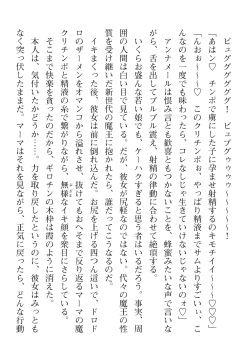 ビュググググググ！　ビュブグゥゥゥゥ〜〜〜〜〜！
「あはン♡　チンポで虜にした子に孕ませ射精するのキモチイイ〜〜♡♡♡
「んおぉ〜〜〜♡　このクリチンポぉ、やっぱり精液までサムよりすごいぃ、こんなのを一度でも味わったら、フレなしじゃ生きていけないじゃないのォ♡」
アンナメールは恨み言も歓喜ともつかないことを、蜂蜜みたいな声で言いながら、舌を出してブルブル震え、射精の律動に合わせて絶頂する。
いくらお盛んな若い娘でも、ケーハクすぎると思う者はいるだろう。事実、周囲の人間は白い目で見ている。だが、彼女が尻軽なのではない。代々の魔王の性質を受け継いだ新世代の魔王に誑かされたら、誰だってこうなるのだ。
イキまくった後、彼女は前に倒れ込んだ。お尻を上げる四つん這いで、ドロドロのザーメンをオマンコから溢れさせ、抜けてもおヘそまで反り返るマーマの魔クリチンポと精液の糸で繋がりながら、無様なイキ顔を衆目にさらしている。
そこまで快楽を貪ったのだから、ギロチンの木枠は霞のように消えた。
本人は、気付いたかどうか……。力を取り戻したというのに、彼女はみっともなく突っ伏したままだ。マーマはそれを見ながら、正気に戻ったら、どんな行動